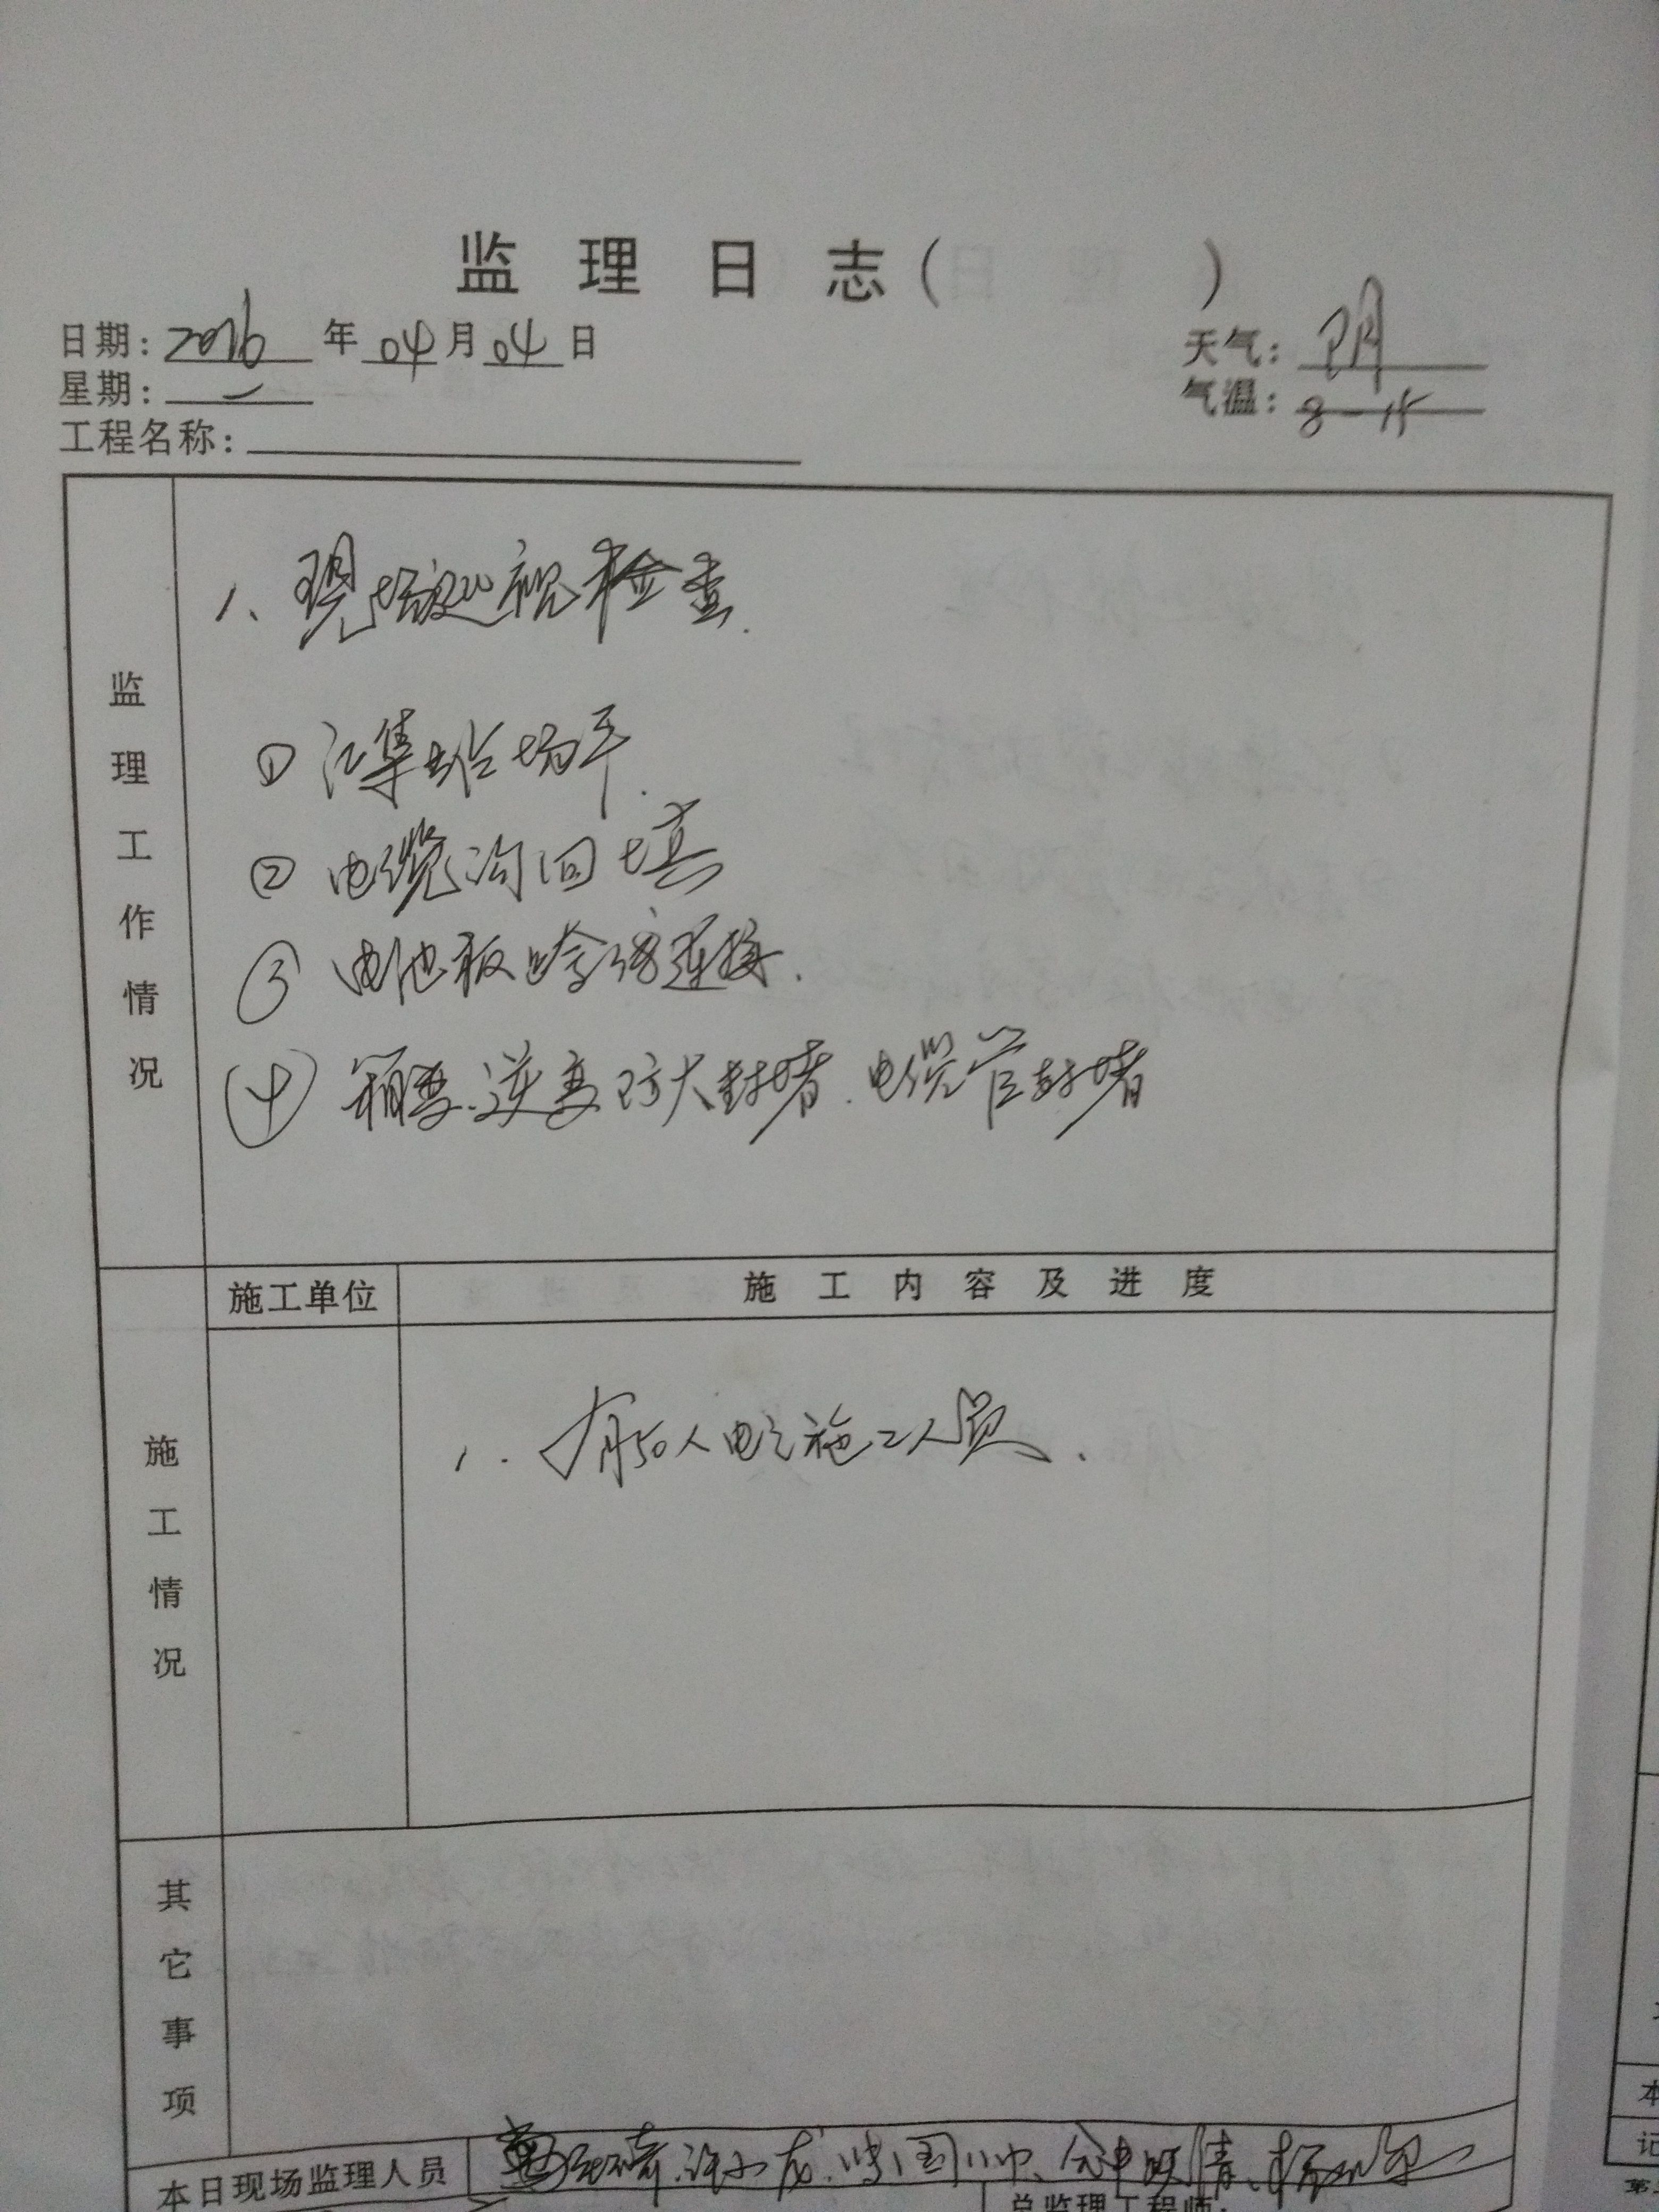 监理日志( )
日期: 2016 年 04 月 04 日
天气: 阴
星期: 一
气温: 8-15
工程名称:
监理工作情况
1、现场巡视检查.
① 汇集站场平.
② 电缆沟回填
③ 电池板跨接连接.
④ 箱变.逆变防火封堵.电缆管封堵
施工单位
施工内容及进度
施工情况
1. 有50人电气施工人员.
其它事项
本日现场监理人员
总监理工程师: